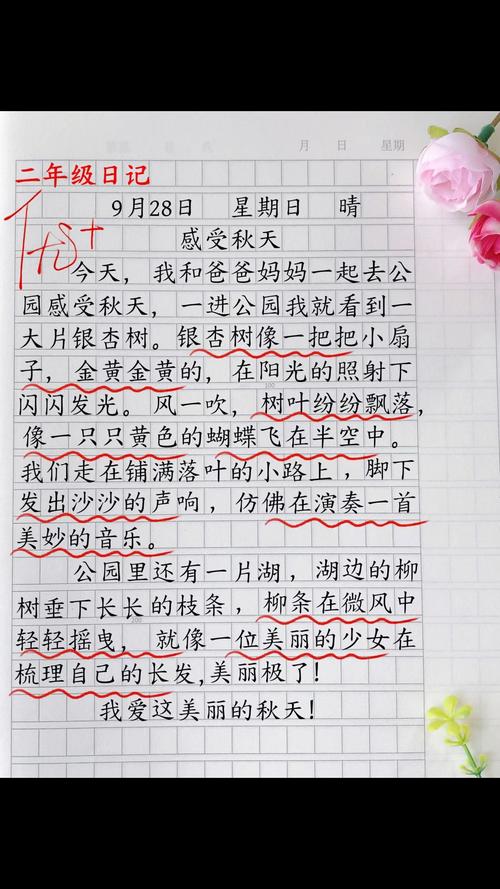 月 日 星期
二年级日记
9月28日 星期日 晴
感受秋天
今天，我和爸爸妈妈一起去公
园感受秋天，一进公园我就看到一
大片银杏树。银杏树像一把把小扇
子，金黄金黄的，在阳光的照射下
闪闪发光。风一吹，树叶纷纷飘落，
像一只只黄色的蝴蝶飞在半空中。
我们走在铺满落叶的小路上，脚下
发出沙沙的声响，仿佛在演奏一首
美妙的音乐。
公园里还有一片湖，湖边的柳
树垂下长长的枝条，柳条在微风中
轻轻摇曳，就像一位美丽的少女在
梳理自己的长发,美丽极了！
我爱这美丽的秋天！